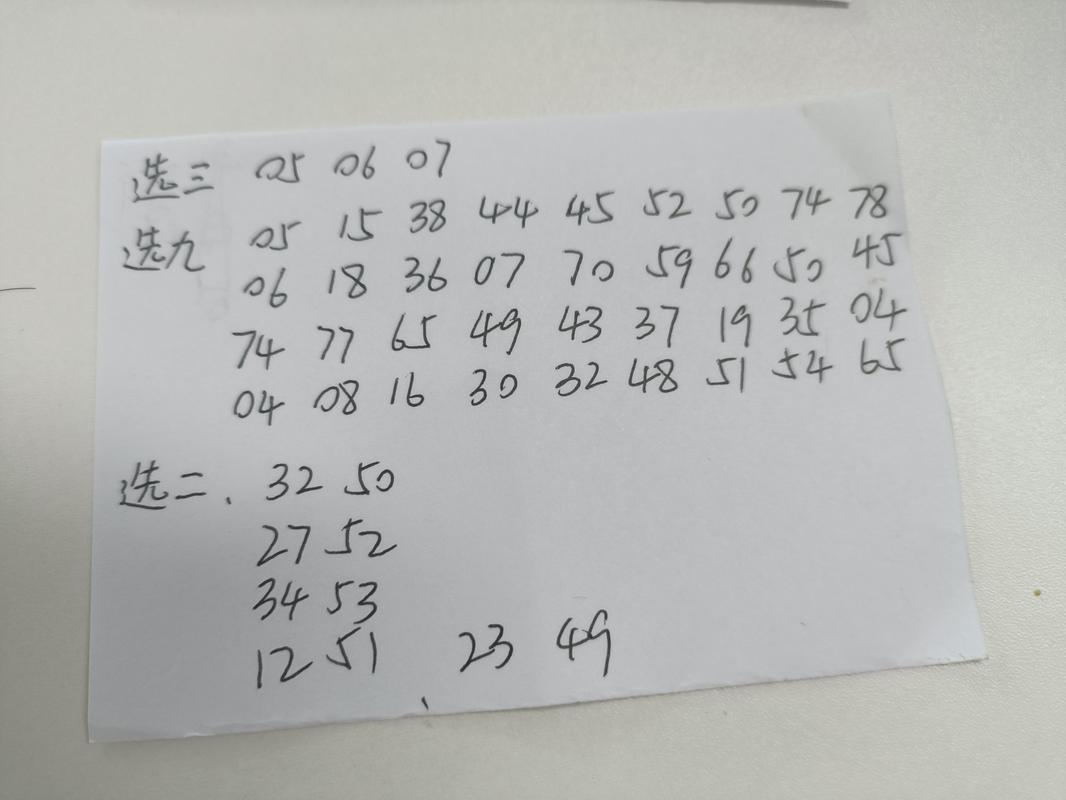 选三 05 06 07
选九 05 15 38 44 45 52 50 74 78
06 18 36 07 70 59 66 50 45
74 77 65 49 43 37 19 35 04
04 08 16 30 32 48 51 54 65
选二、32 50
27 52
34 53
12 51 、 23 49